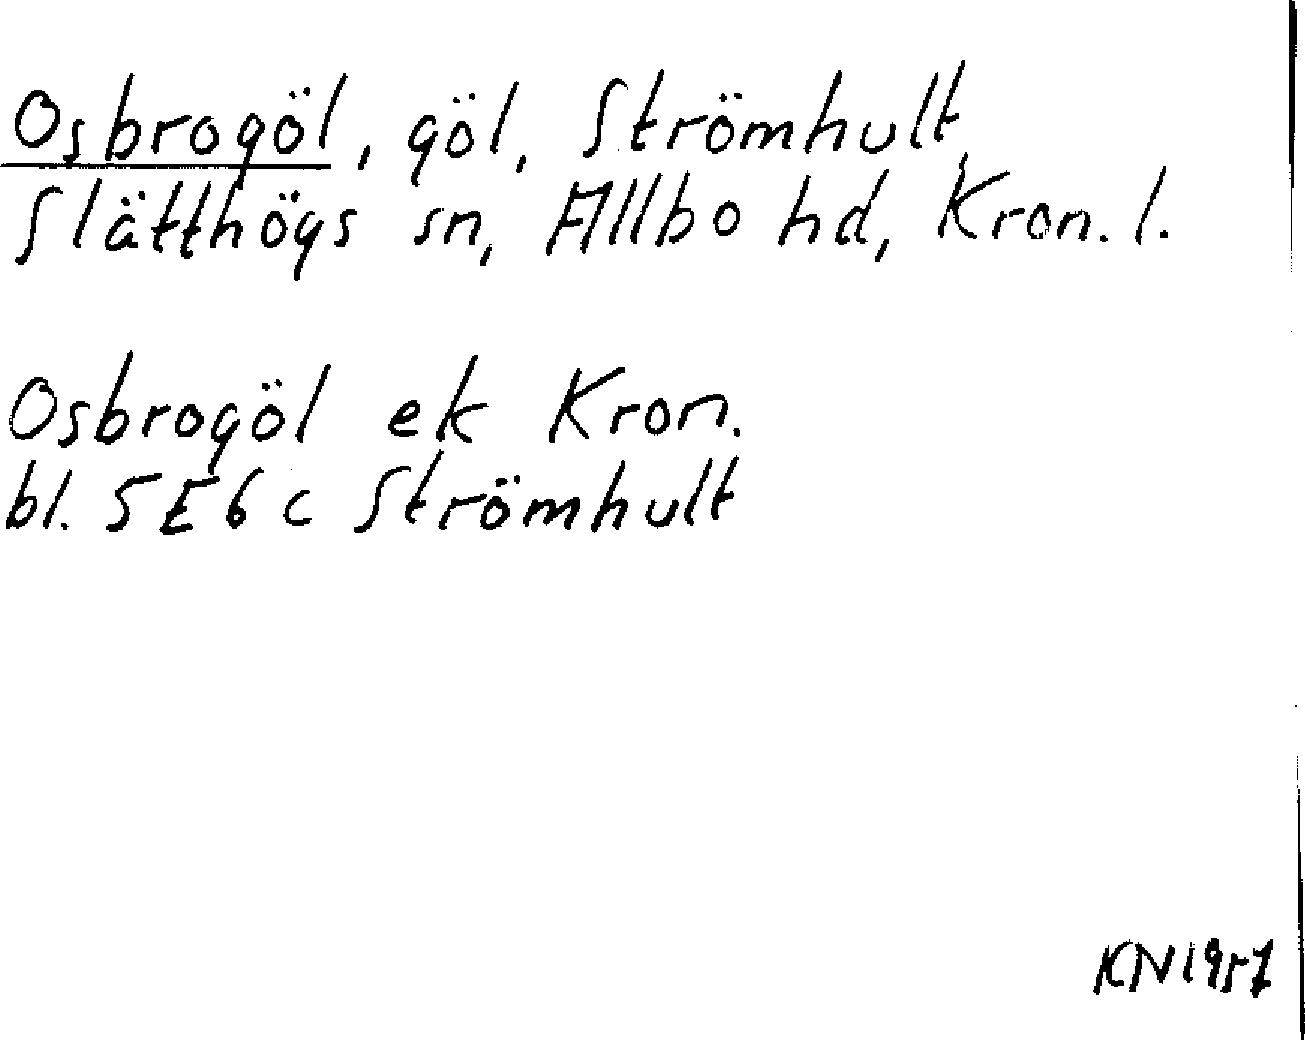 Osbrogöl, göl, Strömhult,
Slätthögs sn, Allbo hd, Kron. l.
Osbrogöl ek Kron.
bl. 5E6c Strömhult
KN 1957